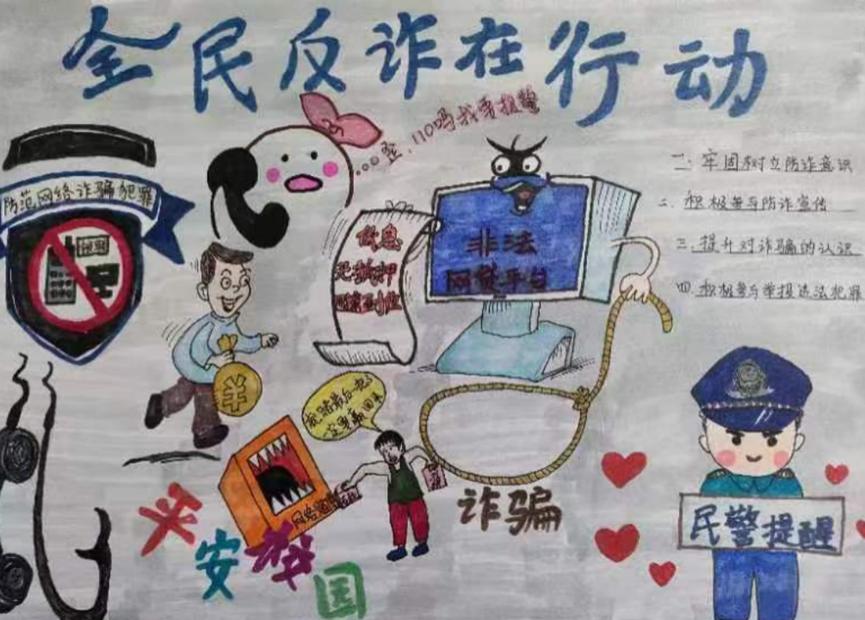 全民反诈在行动
歪,110吗我要报警
防范网络诈骗犯罪
低息
无抵押
非法
网贷平台
一 牢固树立防诈意识
二. 积极参与防诈宣传
三.提升对诈骗的认识
四.积极参与举报违法犯罪
我踏最后一把
网络
诈骗
平安校园
民警提醒